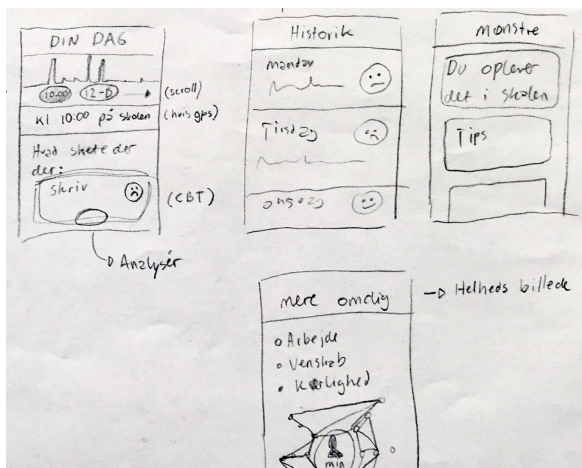 DIN DAG
10:00 12-D
(scroll)
Kl 10:00 på skolen
(hvis gps)
Hvad skete der
der:
skriv
(CBT)
Analysér
Historik
mandag
Tirsdag
onsdag
Mønstre
Du oplever
det i skolen
Tips
mere om dig
Helheds billede
Arbejde
Venskab
Kærlighed
min